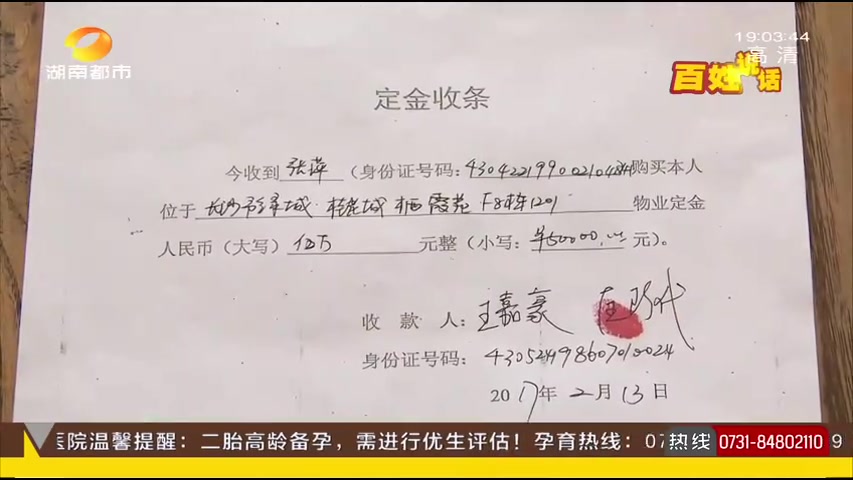 湖南都市
19:03:44
高清
百姓说话
定金收条
今收到 张萍 （身份证号码：购买本人
位于 栖霞苑 F8栋1201 物业定金
人民币（大写）伍万 元整（小写：¥50000.00 元）。
收 款 人：王嘉豪
身份证号码：
2017年2月13日
医院温馨提醒：二胎高龄备孕，需进行优生评估！孕育热线：07
热线 0731-84802110 9